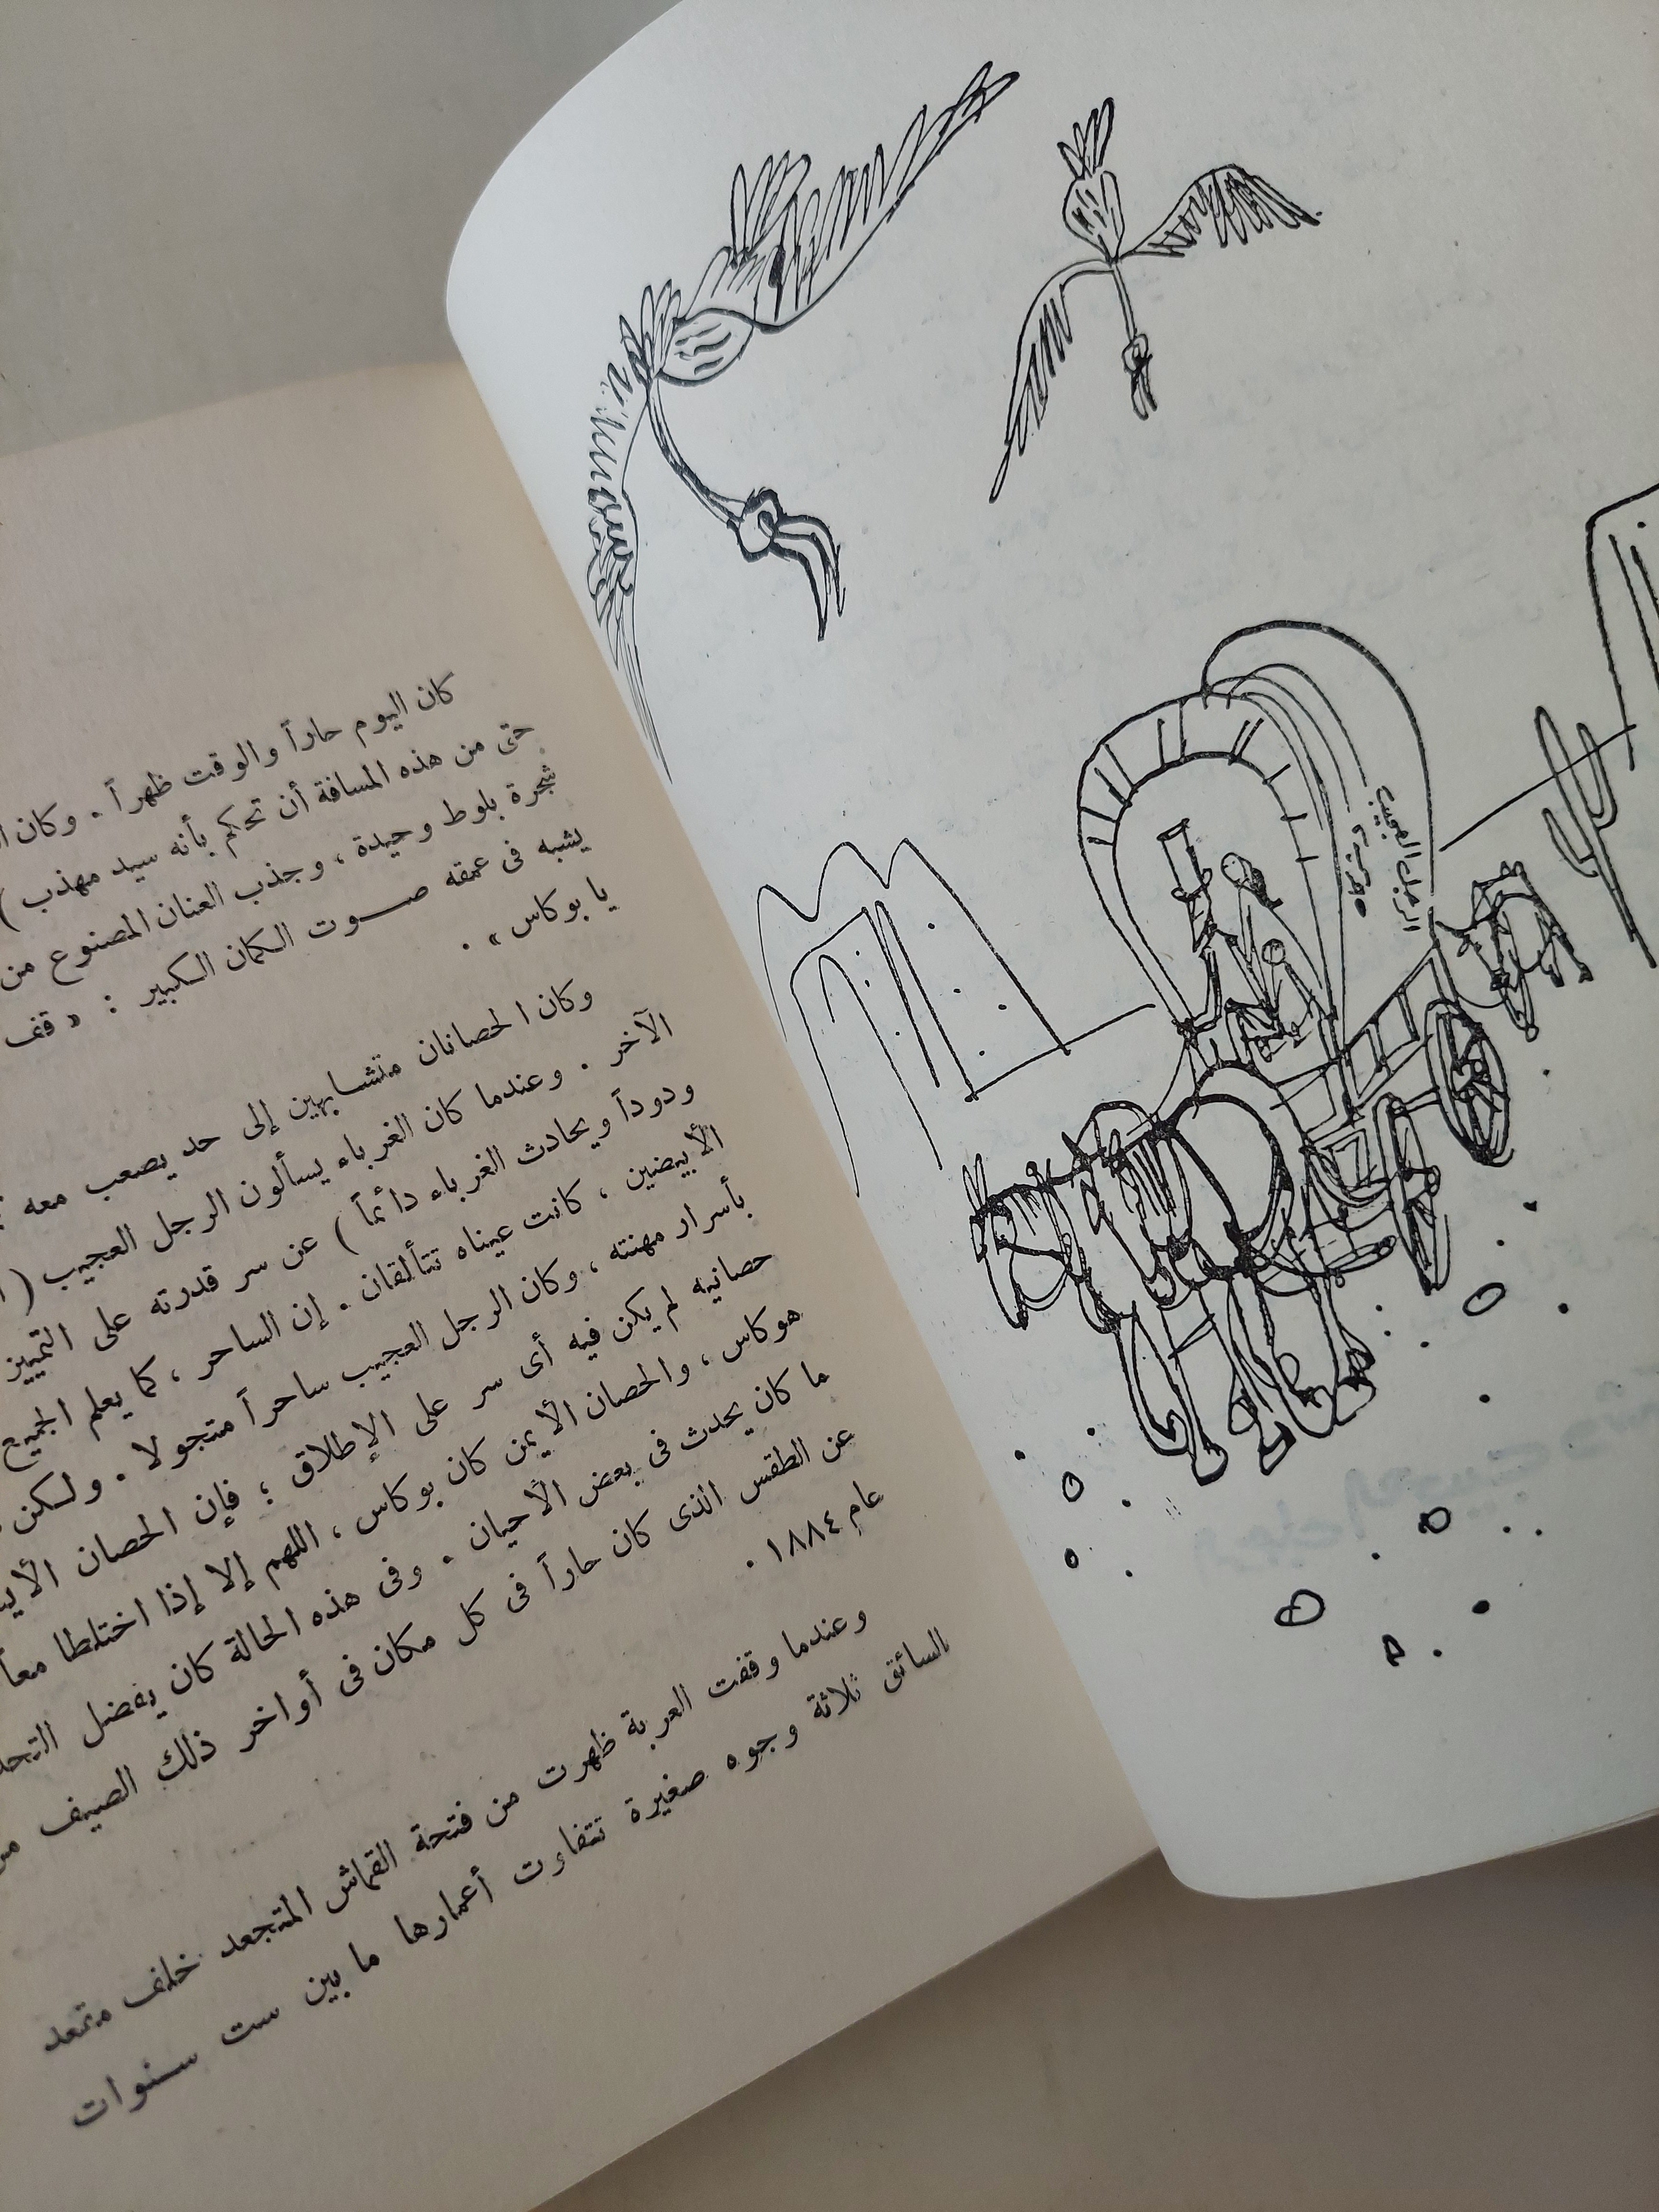 كان اليوم حاراً والوقت ظهراً . وكان
حتى من هذه المسافة أن تحكم بأنه سيد مهذب )
شجرة بلوط وحيدة ، وجذب العنان المصنوع من
يشبه فى عمقه صوت الكمان الكبير : « قف
يا بوكاس » .
وكان الحصانان متشابهين إلى حد يصعب معه
الآخر . وعندما كان الغرباء يسألون الرجل العجيب (
ودوداً ويحادث الغرباء دائماً ) عن سر قدرته على التمييز
الأبيضين ، كانت عيناه تتألقان . إن الساحر ، كما يعلم الجميع
بأسرار مهنته ، وكان الرجل العجيب ساحراً متجولا . ولكن
حصانيه لم يكن فيه أى سر على الإطلاق ؛ فإن الحصان
هوكاس ، والحصان الأيمن كان بوكاس ، اللهم إلا إذا اختلطا معاً
ما كان يحدث فى بعض الأحيان . وفى هذه الحالة كان يفضل
عن الطقس الذى كان حاراً فى كل مكان فى أواخر ذلك الصيف
عام ١٨٨٤ .
وعندما وقفت العربة ظهرت من فتحة القماش المتجعد خلف مقعد
السائق ثلاثة وجوه صغيرة تتفاوت أعمارها ما بين ست سنوات
الرجل العجيب